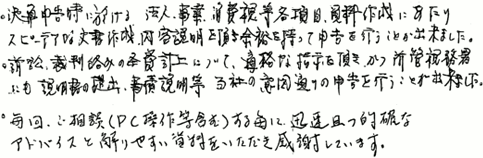 ・決算申告時に於ける 法人、事業、消費税等各項目、資料作成にあたり
スピーディな文書作成、内容説明を頂き余裕を持って申告を行うことが出来ました。
・訴訟、裁判絡みの 会計上について、適格な指示を頂き、かつ所管税務署
にも 説明書の提出、事情説明等 当社の意図通りの申告を行うことが出来ました。
・毎回、ご相談(PC操作等含む)する毎に、迅速且つ的確な
アドバイスと解りやすい資料をいただき感謝しています。